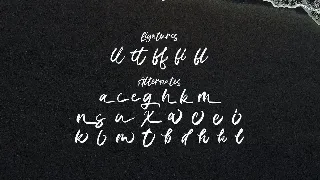 Ligatures
ll tt ff fi fl
Alternates
a c e g h k m
n s u x w o e i
k b m t b d h k l